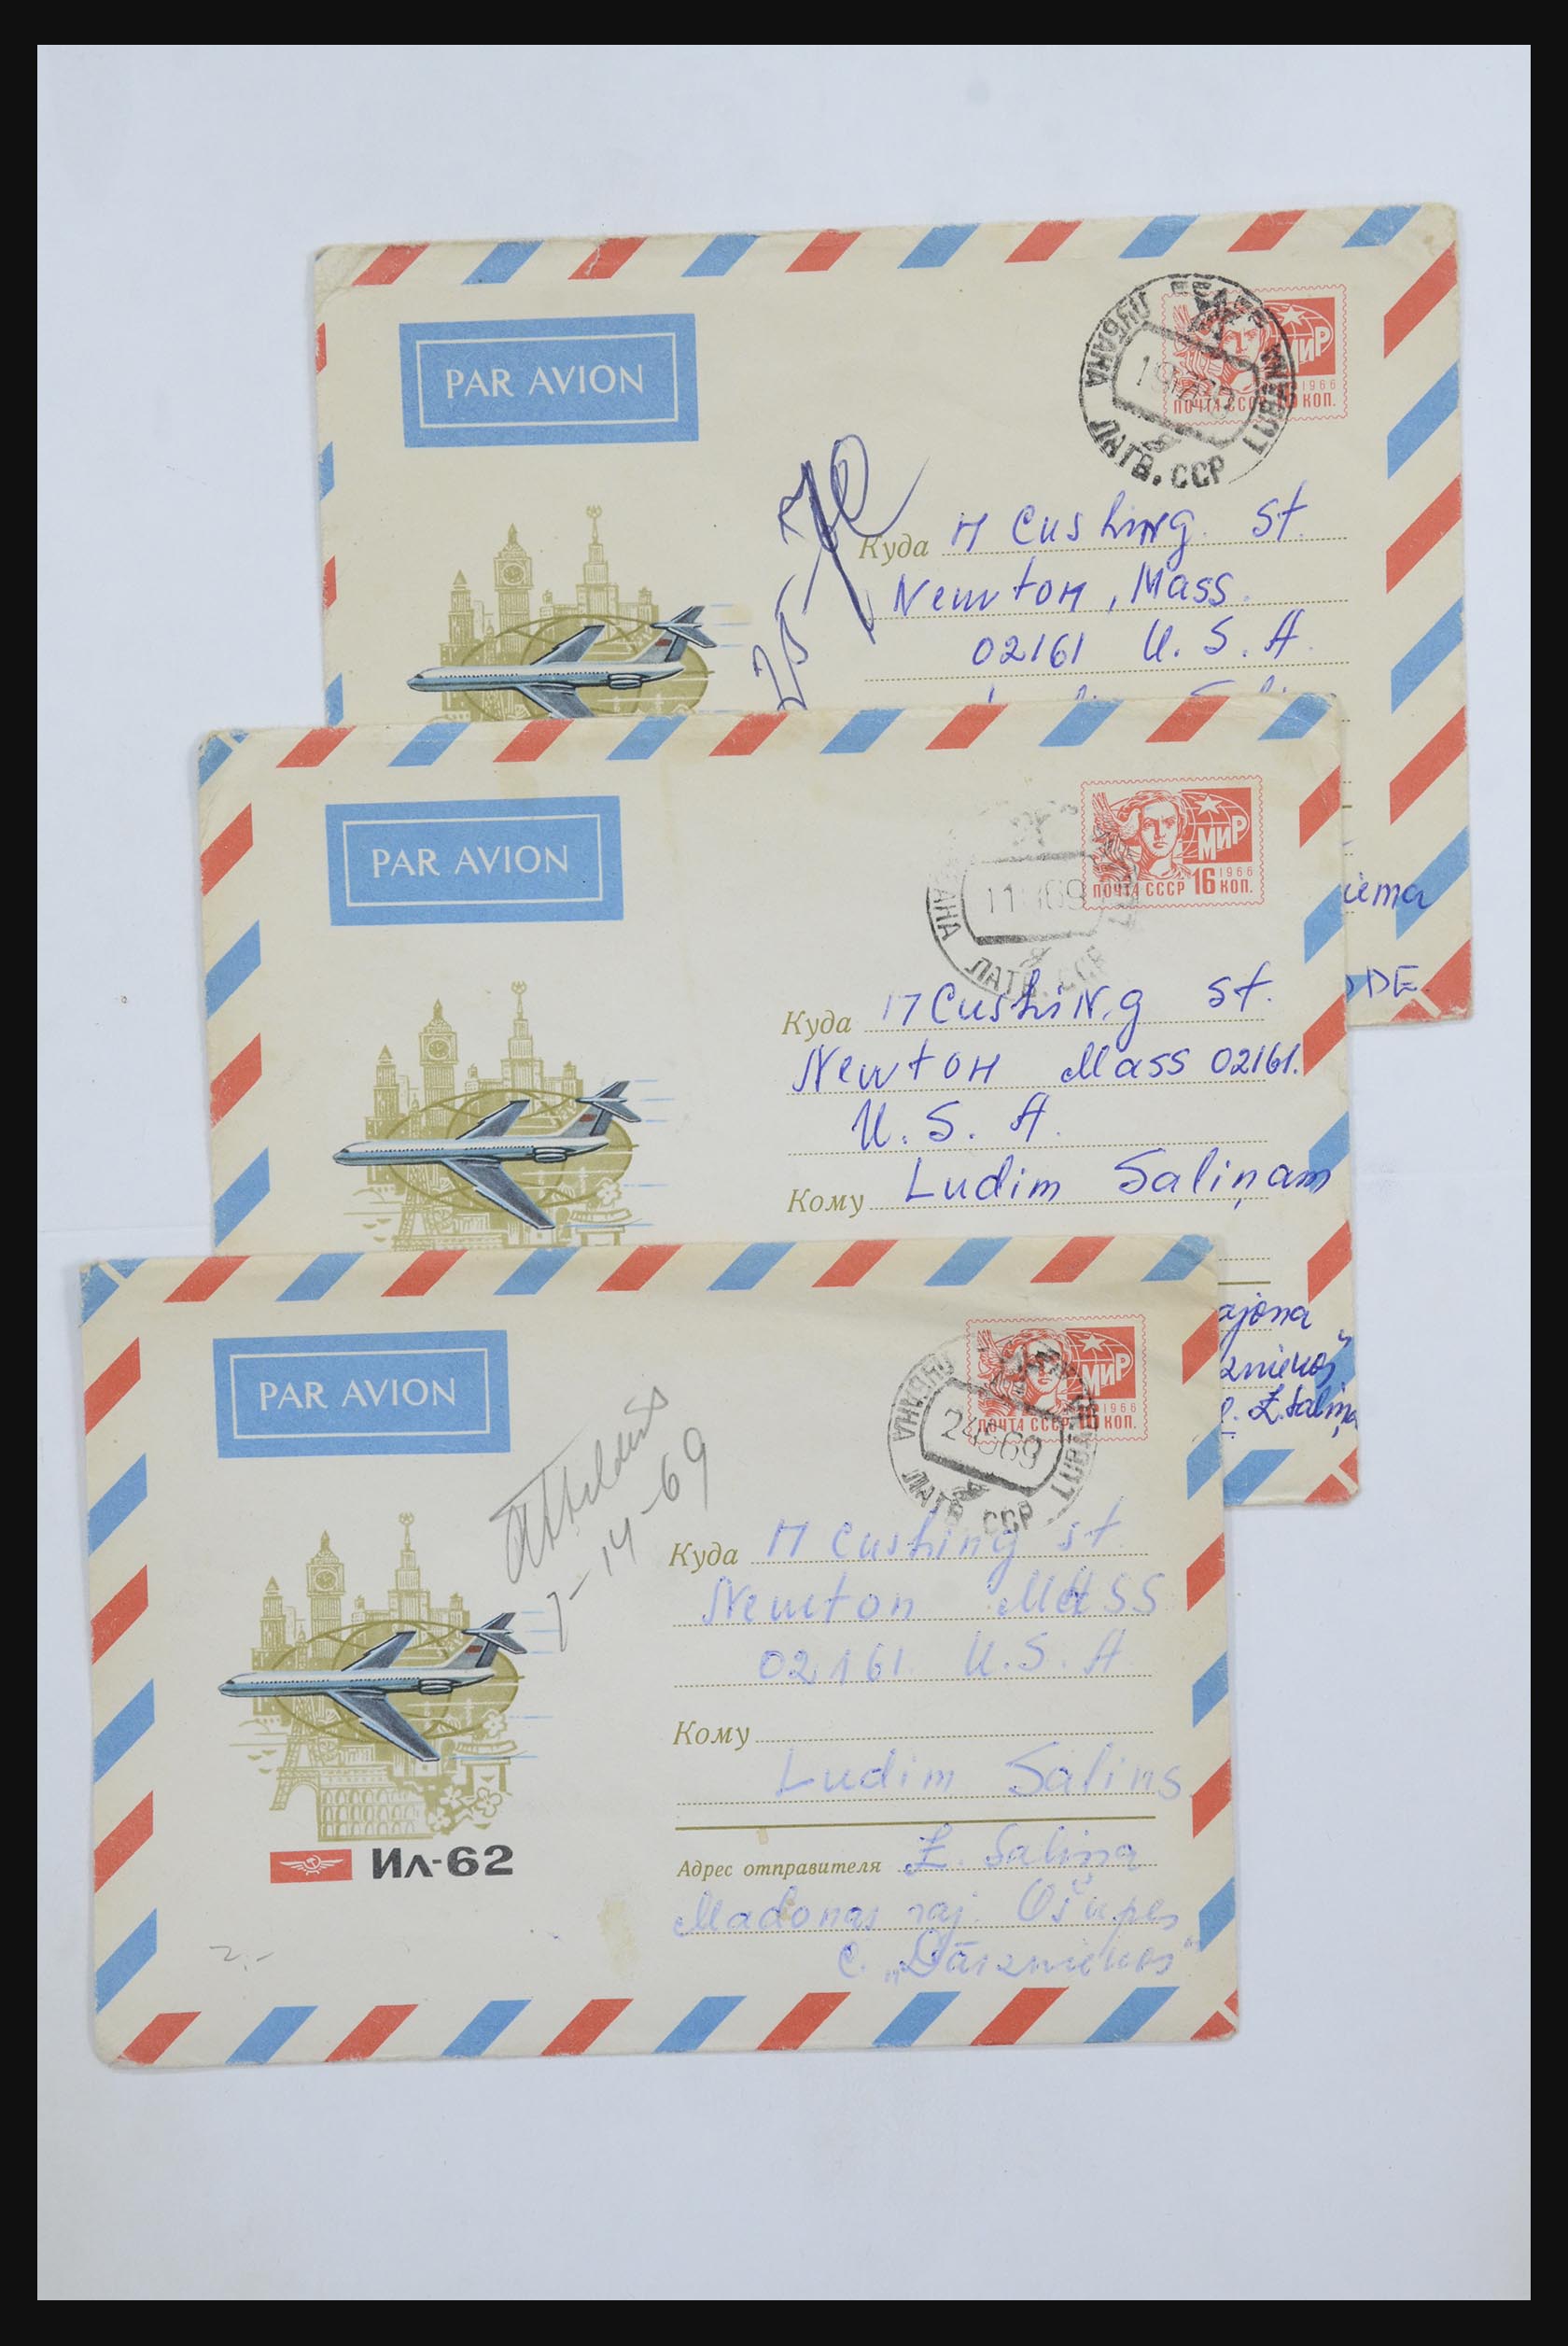 PAR AVION
МИР
1966
ПОЧТА СССР 16 КОП.
ЛАТВ. ССР
Куда 17 Cushing st.
Newton, Mass.
02161 U. S. A.
PAR AVION
МИР
1966
ПОЧТА СССР 16 КОП.
ЛАТВ. ССР
Куда 17 Cushing st.
Newton Mass 02161.
U. S. A.
Кому Ludim Saliņam
ajona
Z. Saliņa
PAR AVION
МИР
1966
ПОЧТА СССР 16 КОП.
ЛАТВ. ССР
7-14-69
Куда 17 Cushing st.
Newton MASS
02161. U. S. A
Кому
Ludim Salins
ИЛ-62
Адрес отправителя Z. Salina
Madonas raj. Ošupes
c. „Dārzniekos"
2.-